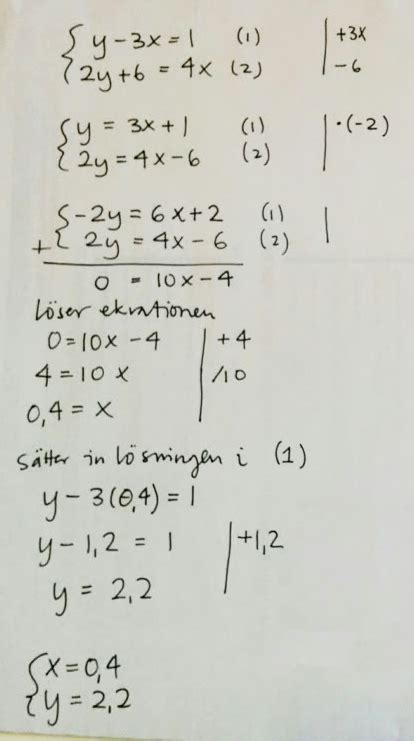 { y - 3x = 1 (1) | +3x
{ 2y + 6 = 4x (2) | -6
{ y = 3x + 1 (1) | ·(-2)
{ 2y = 4x - 6 (2) |
{ -2y = 6x + 2 (1) |
+ { 2y = 4x - 6 (2) |
0 = 10x - 4
Löser ekvationen
0 = 10x - 4 | +4
4 = 10x | /10
0,4 = x
Sätter in lösningen i (1)
y - 3(0,4) = 1
y - 1,2 = 1 | +1,2
y = 2,2
{ x = 0,4
{ y = 2,2